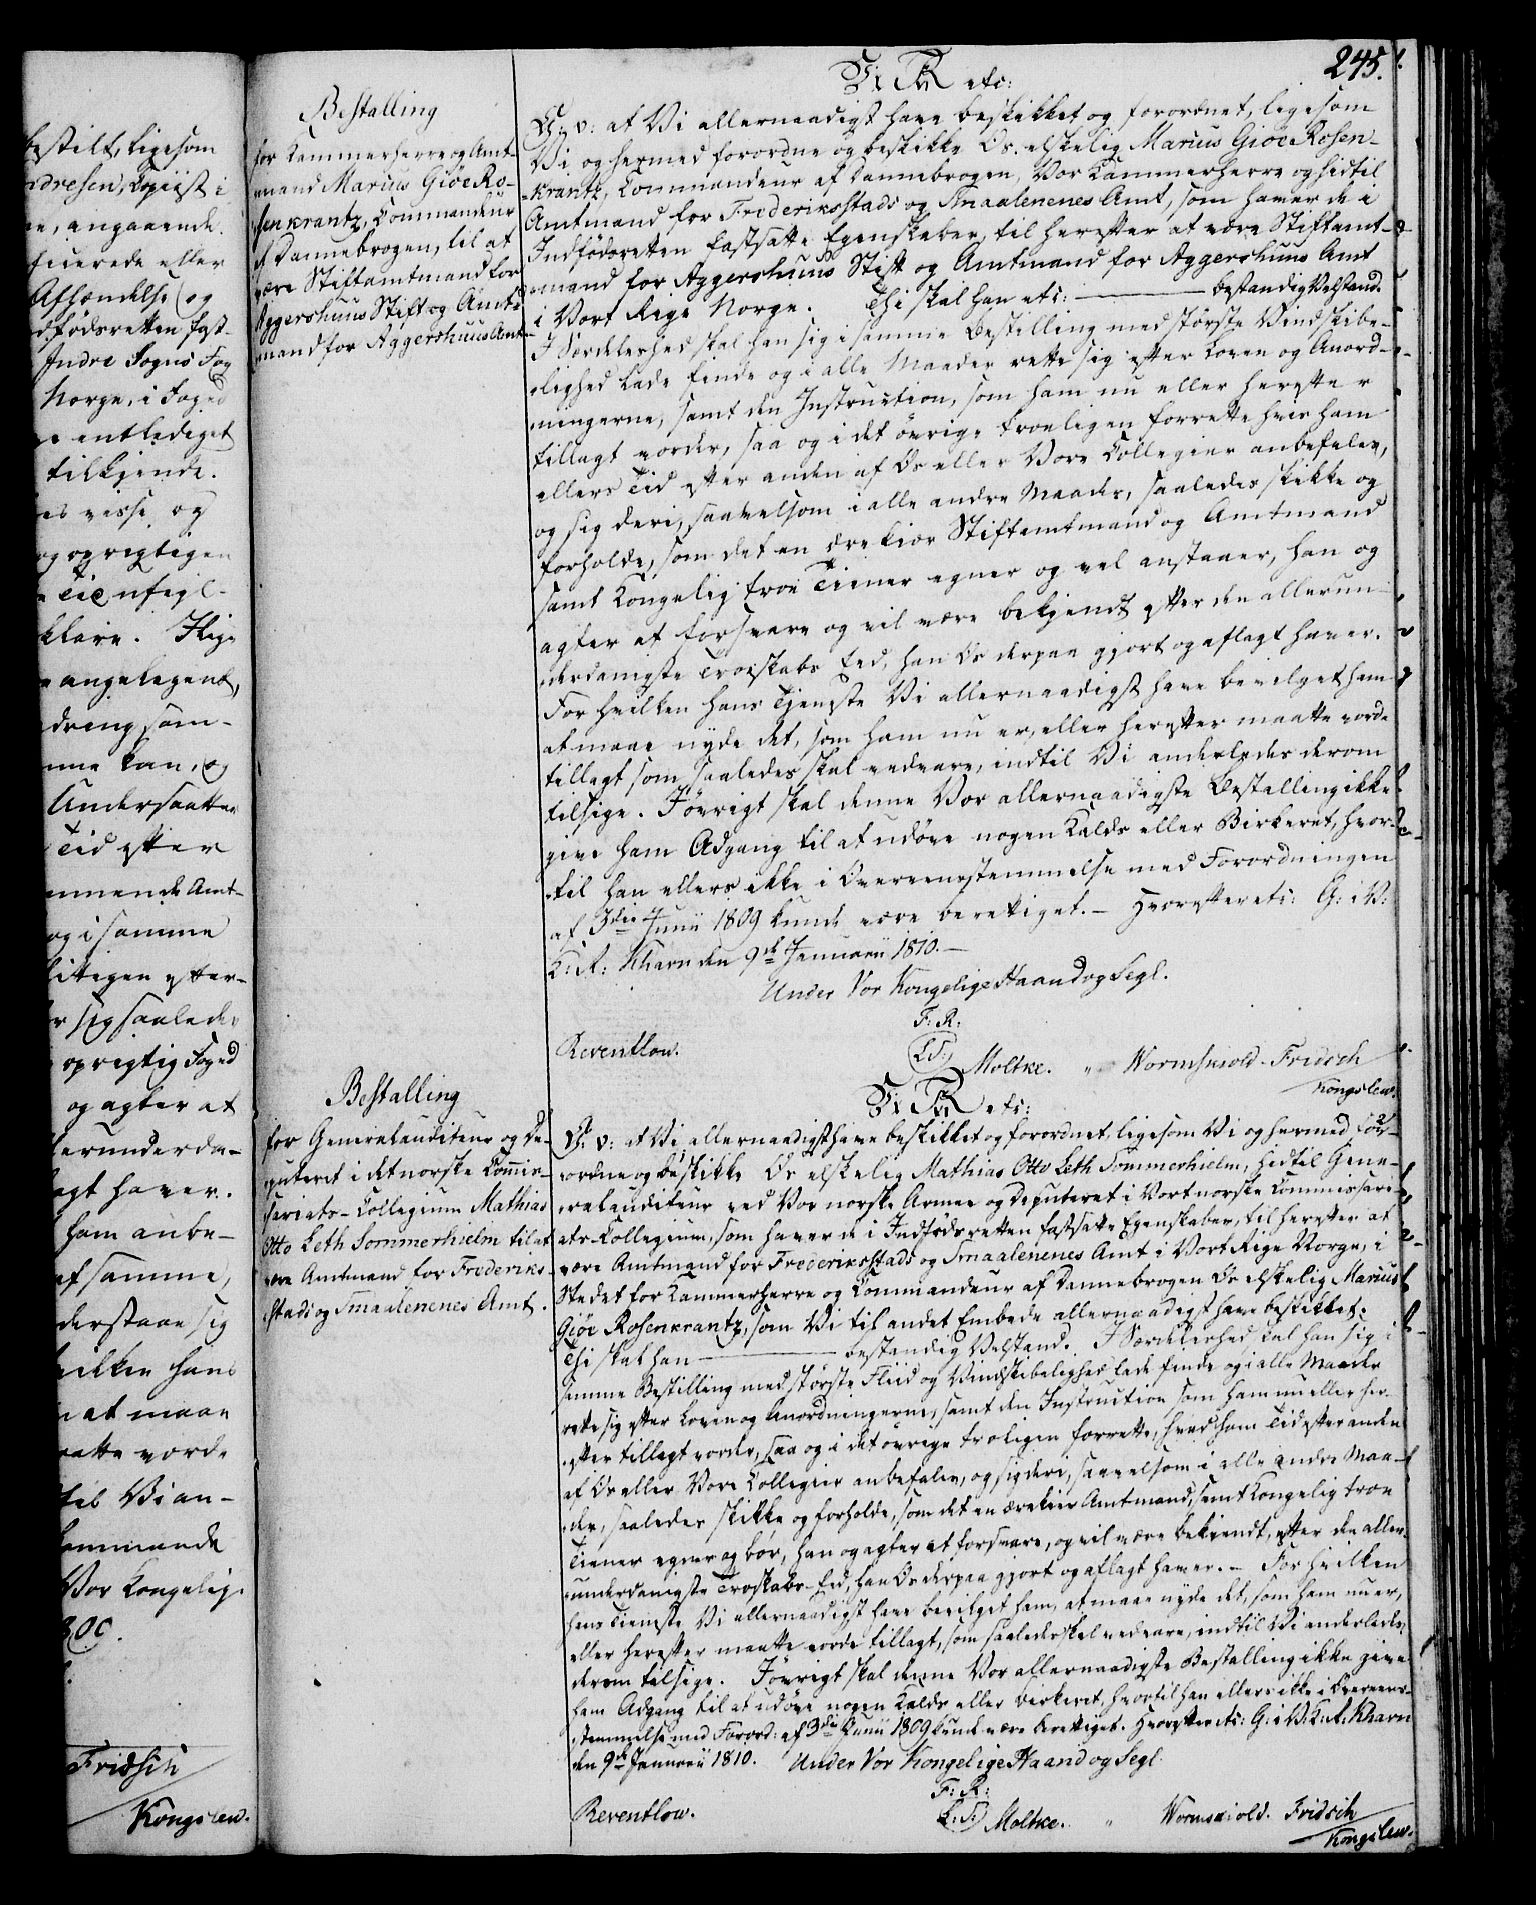 bestilt, ligesom
dresen, Copiist i
ne, angaaende.
ficerede eller
Afhændelse og
dfødsretten fast-
Indre Sogns Fog
Norge, i Foged
entlediget
tilkjende.
visse og
og oprigtigen
klare.
angelegent,
dring som-
nne kan, og
Undersaatter
Tid efter
nmende Amt-
og i samme
littigen efter-
r sig saaledes
oprigtig Foged
og agter at
lerunderda-
agt haver.
ham anbe-
af samme,
derstaae sig
vilken hans
at maae
aatte vorde
til Vi an-
kommende
Vor Kongelige
Fridsch
Kongslew.
245.
Bestalling
for Kammerherre og Amt-
mand Marius Giöe Ro-
senkrantz, Commandeur
af Dannebrogen, til at
være Stiftamtmand for
Aggershuus Stift og Amt-
mand for Aggershuus Amt
F: VI R etc:
G. v: at Vi allernaadigst have beskikket og forordnet, ligesom
Vi og hermed forordne og beskikke Os. elskelig Marius Giöe Rosen-
krantz, Commandeur af Dannebrogen, Vor Kammerherre og hidtil
Amtmand for Frederiksstads og Smaalenenes Amt, som haver de i
Indfödsretten fastsatte Egenskaber, til herefter at være Stiftamt-
mand for Aggershuus Stift og Amtmand for Aggershuus Amt
i Vort Rige Norge. Thi skal han etc: ——— bestandig Velstand.
I Særdeleshed skal han sig i samme Bestilling med störste Vindskibe-
lighed lade finde og i alle Maader rette sig efter Loven og Anord-
ningerne, samt den Instruction, som ham nu eller herefter
tillagt vorder, saa og i det övrige troeligen forrette hvis ham
ellers Tid efter anden af Os eller Vore Collegier anbefales,
og sig deri, saavelsom i alle andre Maader, saaledes skikke og
forholde, som det en ærekiær Stiftamtmand og Amtmand
samt Kongelig troe Tiener egner og vel anstaaer, han og
agter at forsvare og vil være bekjendt efter den allerun-
derdanigste Troeskabs Eed, han Os derpaa gjort og aflagt haver.
For hvilken hans Tjeneste Vi allernaadigst have bevilget ham
at maae nyde det, som ham nu er, eller herefter maatte vorde
tillagt som saaledes skal vedvare, indtil Vi anderledes derom
tilsige. Iövrigt skal denne Vor allernaadigste Bestalling ikke
give ham Adgang til at udöve nogen Kalds eller Birkeret, hvor-
til han ellers ikke i Overeensstemmelse med Forordningen
af 3die Junii 1809 kunde være berettiget. — Hvorefter etc: G: i V:
K: St: Khavn den 9de Januarii 1810. —
Under Vor Kongelige Haand og Segl.
F: R.
(LS:)
Reventlow.
Moltke. " Wormskiold. Fridsch
Kongslew.
Bestalling
for Generalauditeur og De-
puteret i det norske Com̄is-
sariats-Collegium Mathias
Otto Leth Sommerhielm til at
være Amtmand for Frederiks-
stads og Smaalenenes Amt.
F: VI R etc:
G. v: at Vi allernaadigst have beskikket og forordnet, ligesom Vi og hermed for-
ordne og beskikke Os elskelig Mathias Otto Leth Sommerhielm, hidtil Gene-
ralauditeur ved Vor norske Armee og Deputeret i Vort norske Commissari-
ats-Collegium, som haver de i Indfödsretten fastsatte Egenskaber, til herefter at
være Amtmand for Frederiksstads og Smaalenenes Amt i Vort Rige Norge, i
Stedet for Kammerherre og Commandeur af Dannebrogen Os elskelig Marius
Giöe Rosenkrantz, som Vi til andet Embede allernaadigst have beskikket.
Thi skal han ——— bestandig Velstand. I Særdeleshed skal han sig i
samme Bestilling med störste Fliid og Vindskibelighed lade finde og i alle Maader
rette sig efter Loven og Anordningerne, samt den Instruction som ham nu eller her-
efter tillagt vorder, saa og i det övrige troligen forrette, hvad ham Tid efter anden
af Os eller Vore Collegier anbefales, og sig deri, saavelsom i alle andre Maa-
der, saaledes skikke og forholde, som det en ærekiær Amtmand, samt Kongelig troe
Tiener egner og bör, han og agter at forsvare, og vil være bekiendt, efter den aller-
underdanigste Troskabs-Eed, han Os derpaa gjort og aflagt haver. — For hvilken
hans Tieneste Vi allernaadigst have bevilget ham, at maae nyde det, som ham nu er,
eller herefter maatte vorde tillagt, som saaledes skal vedvare, indtil Vi anderledes
derom tilsige. Iövrigt skal denne Vor allernaadigste Bestalling ikke give
ham Adgang til at udöve nogen Kalds eller Birkeret, hvortil han ellers ikke i Overeens-
stemmelse med Forord: af 3die Junii 1809 kunde være berettiget. Hvorefter etc: G: i V: K: St: Khavn
den 9de Januarii 1810. Under Vor Kongelige Haand og Segl
F: R:
(L.S.)
Reventlow.
Moltke. " Wormskiold. Fridsch
Kongslew.